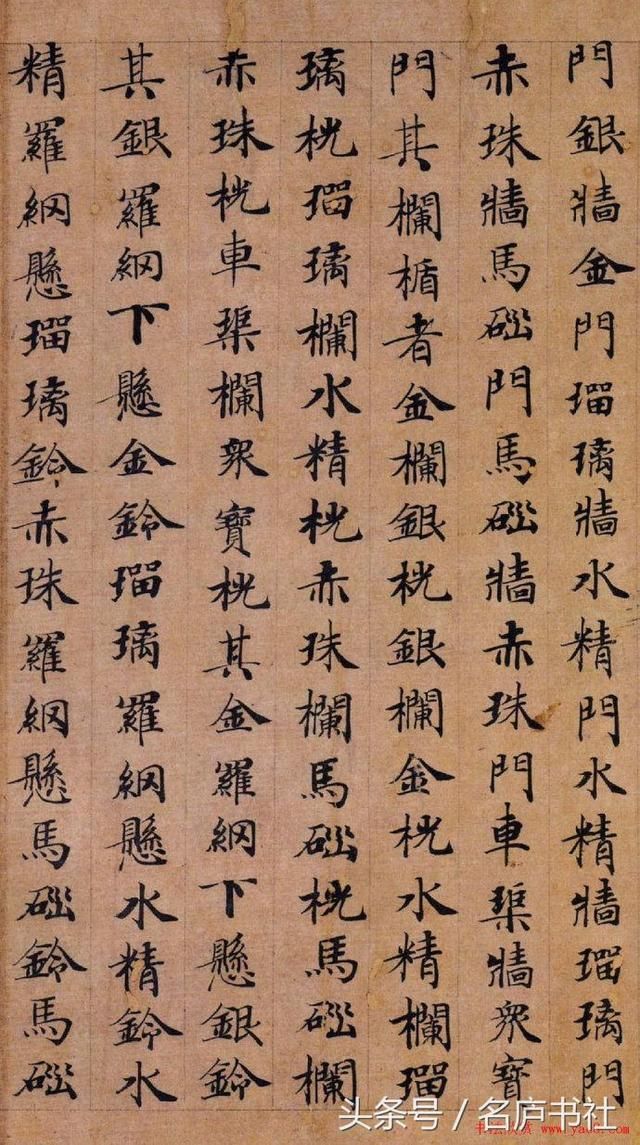 門銀牆金門瑠璃牆水精門水精牆瑠璃門
赤珠牆馬碯門馬碯牆赤珠門車璖牆眾寶
門其欄楯者金欄銀桄銀欄金桄水精欄瑠
璃桄瑠璃欄水精桄赤珠欄馬碯桄馬碯欄
赤珠桄車璖欄眾寶桄其金羅網下懸銀鈴
其銀羅網下懸金鈴瑠璃羅網懸水精鈴水
精羅網懸瑠璃鈴赤珠羅網懸馬碯鈴馬碯
头条号/名庐书社